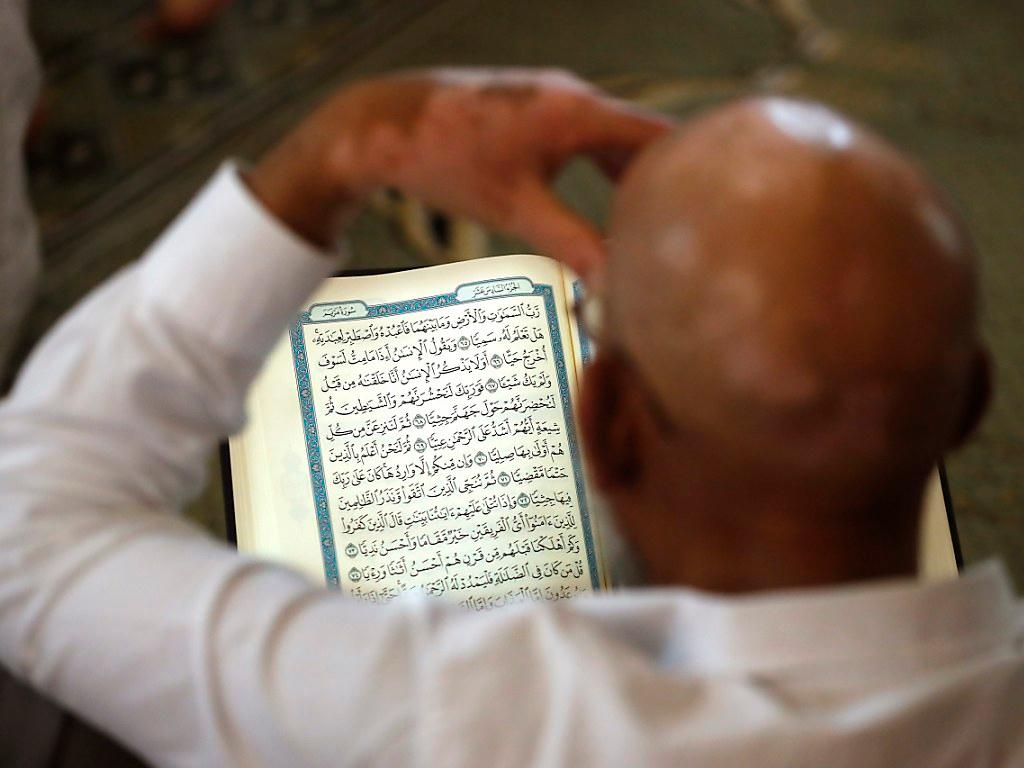 الجزء السادس عشر
سورة مريم
رَّبُّ ٱلسَّمَٰوَٰتِ وَٱلْأَرْضِ وَمَا بَيْنَهُمَا فَٱعْبُدْهُ وَٱصْطَبِرْ لِعِبَٰدَتِهِۦ
هَلْ تَعْلَمُ لَهُۥ سَمِيًّا ٦٥ وَيَقُولُ ٱلْإِنسَٰنُ أَءِذَا مَا مِتُّ لَسَوْفَ
أُخْرَجُ حَيًّا ٦٦ أَوَلَا يَذْكُرُ ٱلْإِنسَٰنُ أَنَّا خَلَقْنَٰهُ مِن قَبْلُ
وَلَمْ يَكُ شَيْـًٔا ٦٧ فَوَرَبِّكَ لَنَحْشُرَنَّهُمْ وَٱلشَّيَٰطِينَ ثُمَّ
لَنُحْضِرَنَّهُمْ حَوْلَ جَهَنَّمَ جِثِيًّا ٦٨ ثُمَّ لَنَنزِعَنَّ مِن كُلِّ
شِيعَةٍ أَيُّهُمْ أَشَدُّ عَلَى ٱلرَّحْمَٰنِ عِتِيًّا ٦٩ ثُمَّ لَنَحْنُ أَعْلَمُ بِٱلَّذِينَ
هُمْ أَوْلَىٰ بِهَا صِلِيًّا ٧٠ وَإِن مِّنكُمْ إِلَّا وَارِدُهَا كَانَ عَلَىٰ رَبِّكَ
حَتْمًا مَّقْضِيًّا ٧١ ثُمَّ نُنَجِّى ٱلَّذِينَ ٱتَّقَوا۟ وَّنَذَرُ ٱلظَّٰلِمِينَ
فِيهَا جِثِيًّا ٧٢ وَإِذَا تُتْلَىٰ عَلَيْهِمْ ءَايَٰتُنَا بَيِّنَٰتٍ قَالَ ٱلَّذِينَ كَفَرُوا۟
لِلَّذِينَ ءَامَنُوٓا۟ أَىُّ ٱلْفَرِيقَيْنِ خَيْرٌ مَّقَامًا وَأَحْسَنُ نَدِيًّا ٧٣
وَكَمْ أَهْلَكْنَا قَبْلَهُم مِّن قَرْنٍ هُمْ أَحْسَنُ أَثَٰثًا وَرِءْيًا ٧٤
قُلْ مَن كَانَ فِى ٱلضَّلَٰلَةِ فَلْيَمْدُدْ لَهُ ٱلرَّحْمَٰنُ